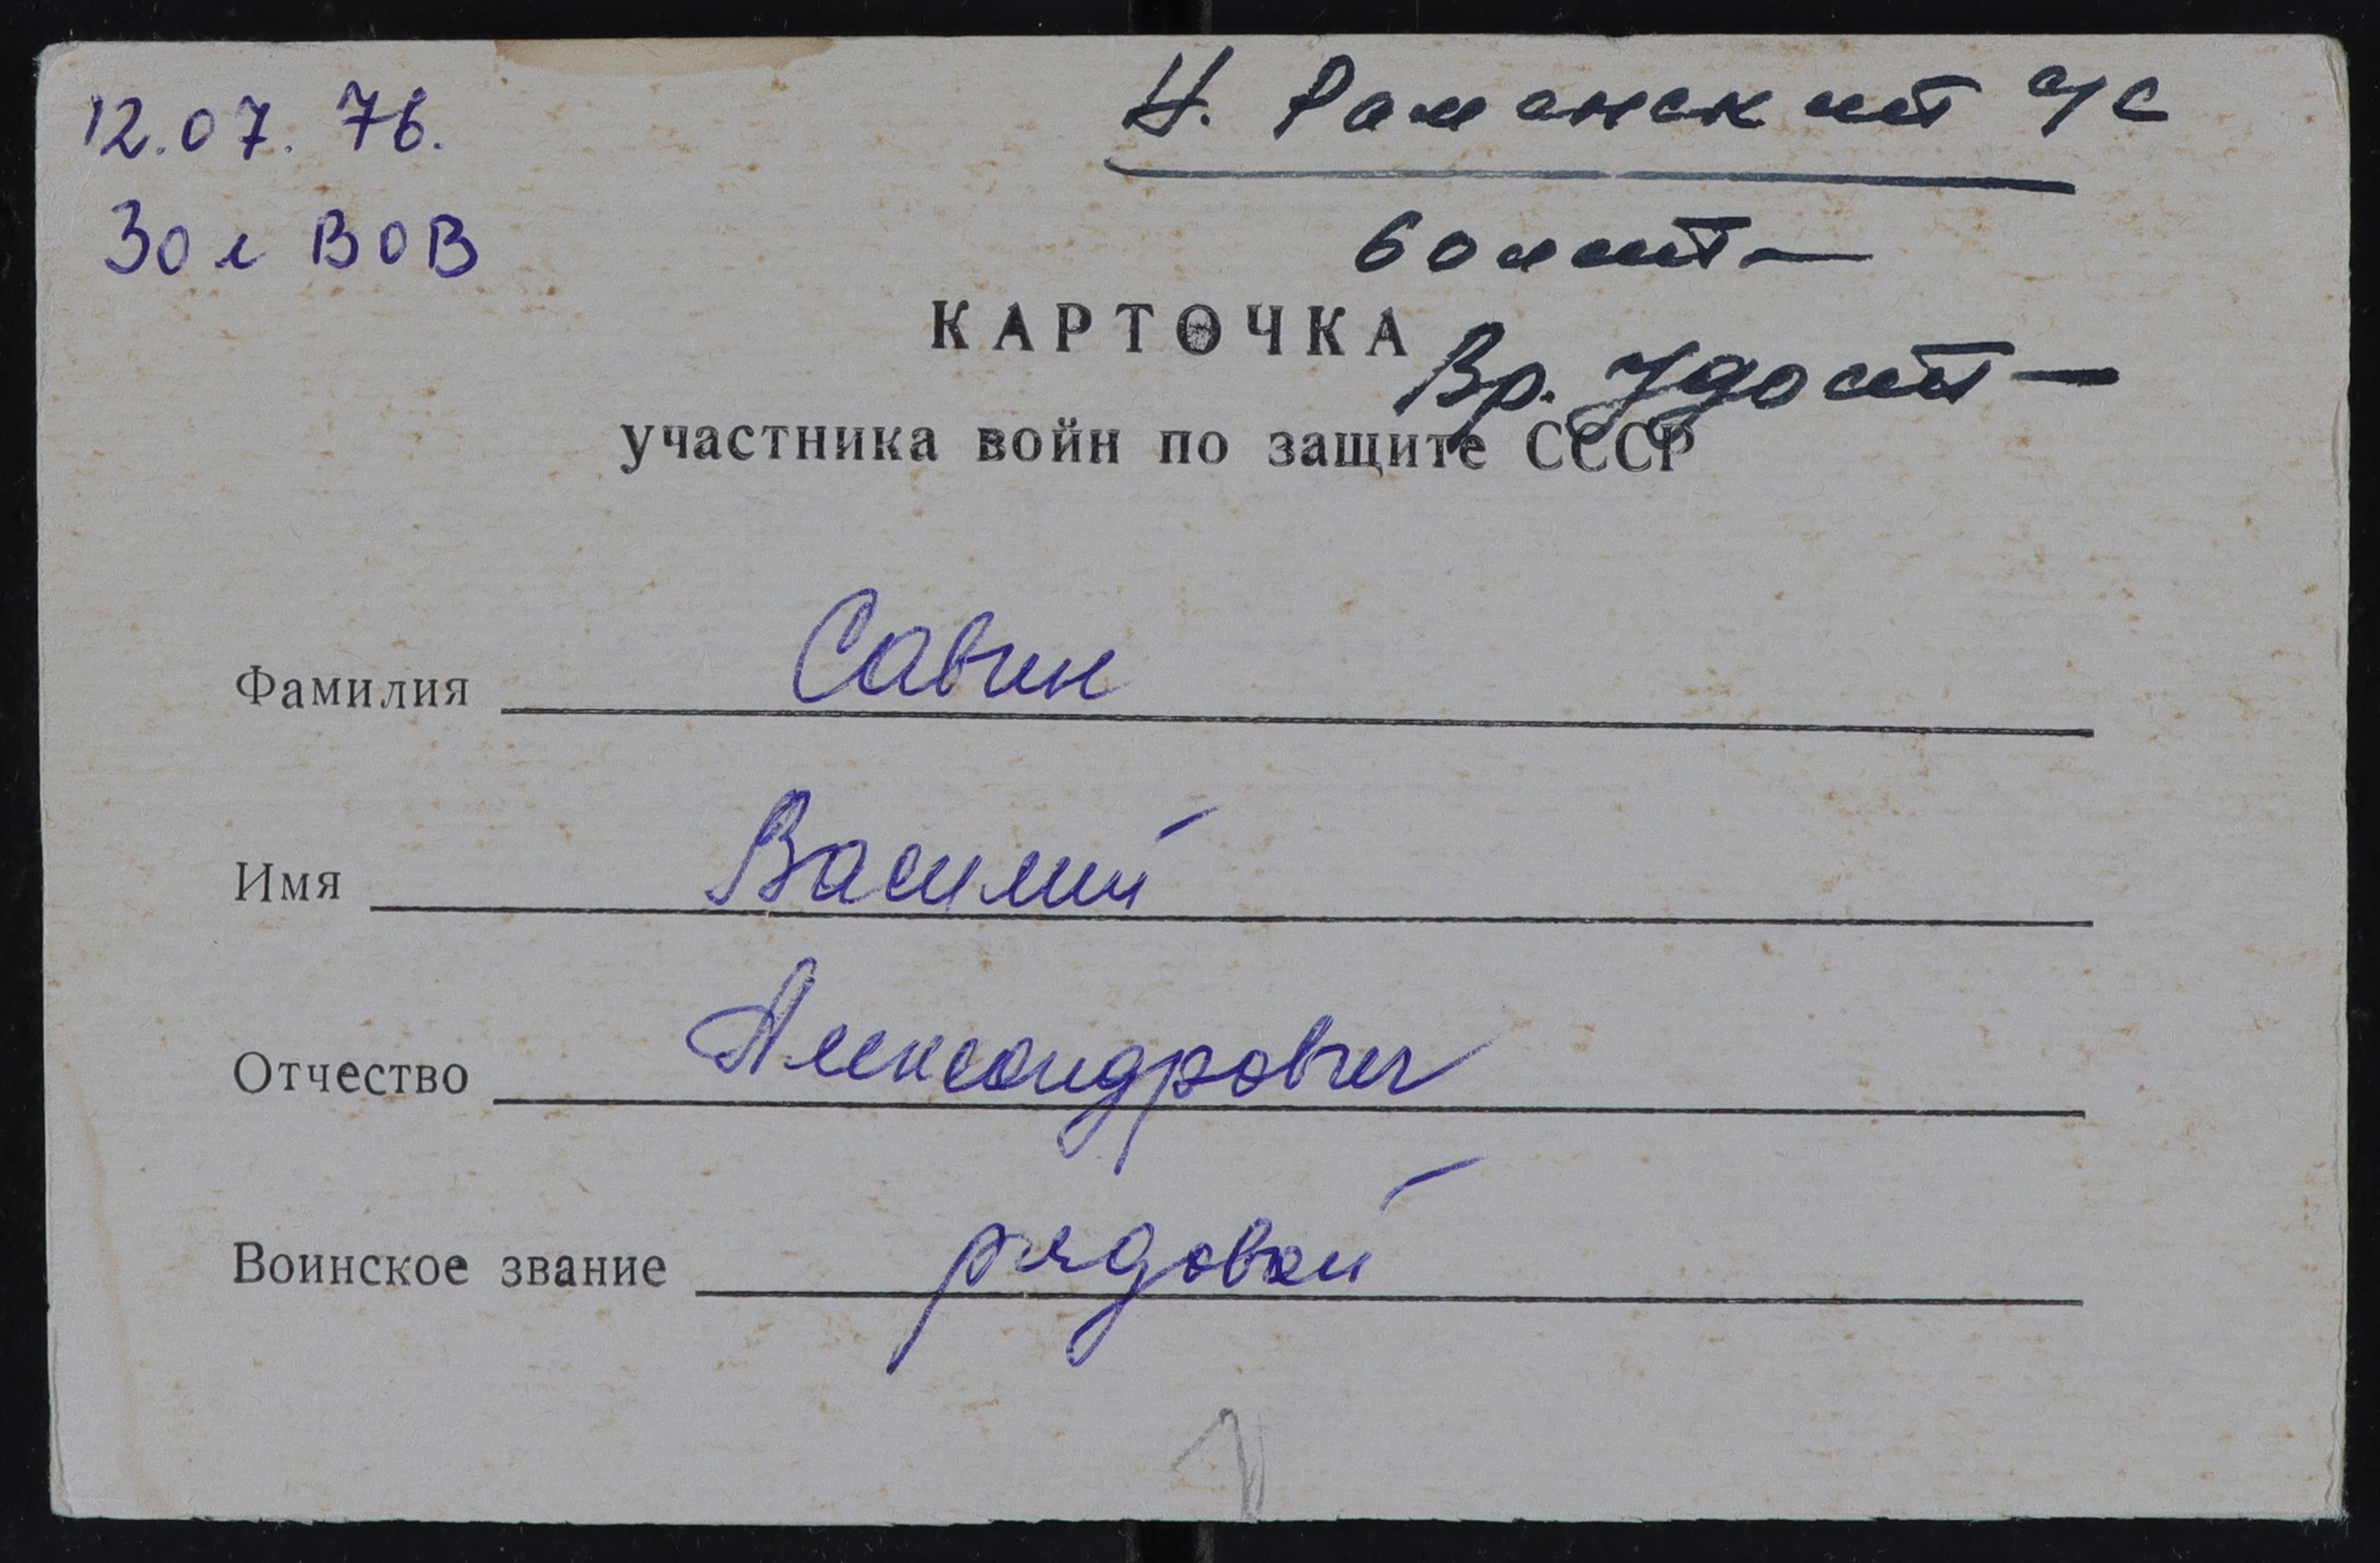 12.07.76.
Н. Раменский с/с
30 л ВОВ
КАРТОЧКА
Вр. удост —
участника войн по защите СССР
Фамилия Савин
Имя Василий
Отчество Александрович
Воинское звание рядовой